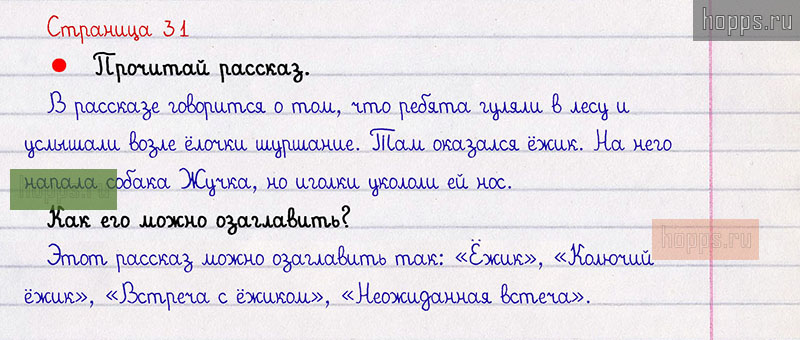 hopps.ru
Страница 31
Прочитай рассказ.
В рассказе говорится о том, что ребята гуляли в лесу и
услышали возле ёлочки шуршание. Там оказался ёжик. На него
напала собака Жучка, но иголки укололи ей нос.
hopps.ru
Как его можно озаглавить?
hopps.ru
Этот рассказ можно озаглавить так: «Ёжик», «Колючий
ёжик», «Встреча с ёжиком», «Неожиданная встеча».